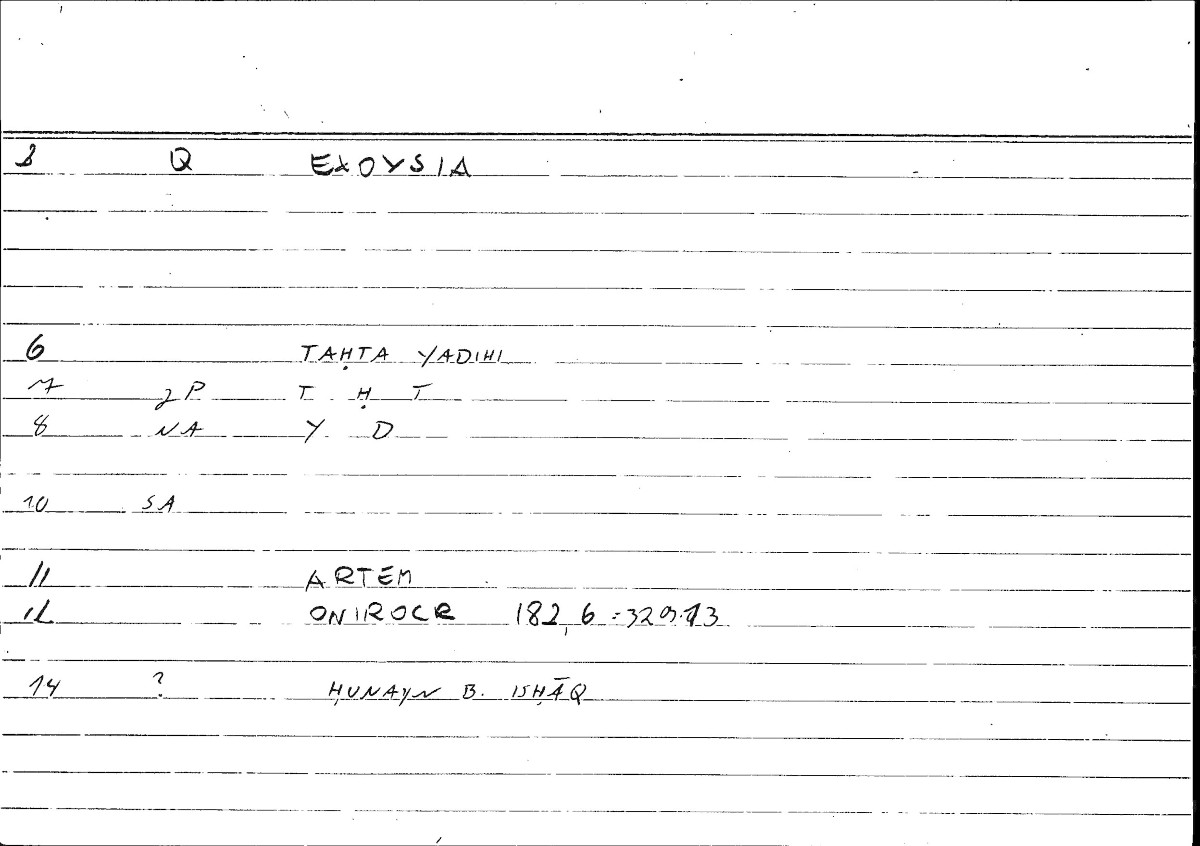 1 Q EXOYSIA
6 TAḤTA YADIHI
7 2P T Ḥ T
8 NA Y D
10 SA
11 ARTEM
12 ONIROCR 182,6 = 329.13
14 ? ḤUNAYN B. ISḤĀQ